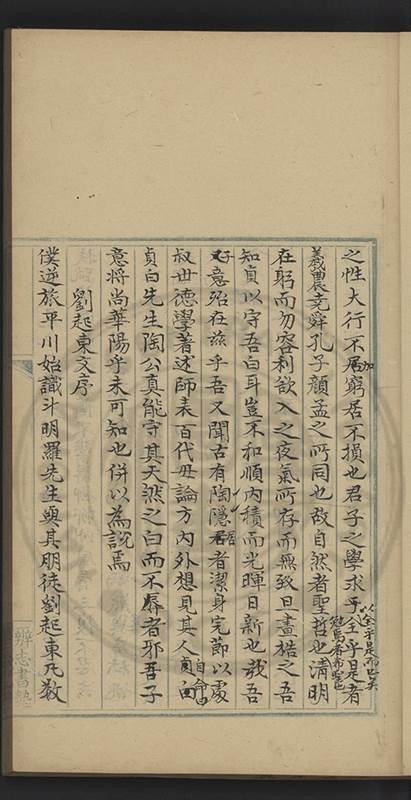 之性大行不加窮居不損也君子之學求乎全乎是者
以全乎是而已矣
羲農堯舜孔子顏孟之所同也故自然者聖哲也清明
在躬而勿容利欲入之夜氣所存而無致旦晝梏之吾
知貞以守吾白耳豈不和順內積而光暉日新也哉吾
意殆在茲乎吾又聞古有陶隱居者潔身完節以處
叔世德學著述師表百代毋論方內外想見其人自
貞白先生陶公真能守其天然之白而不辱者邪吾子
意將尚華陽乎未可知也併以為說焉
劉起東文序
僕逆旅平川始識斗明羅先生與其朋徒劉起東凡數
辨志書塾